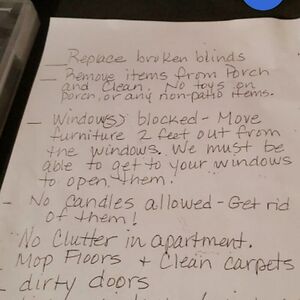 _ Replace broken blinds
_ Remove items from Porch
and Clean. No toys on
porch, or any non-patio items.
_ Window(s) blocked - Move
furniture 2 feet out from
the windows. We must be
able to get to your windows
to open them.
- No Candles allowed - Get rid
of them!
- No Clutter in apartment.
- Mop Floors + Clean carpets
- dirty doors